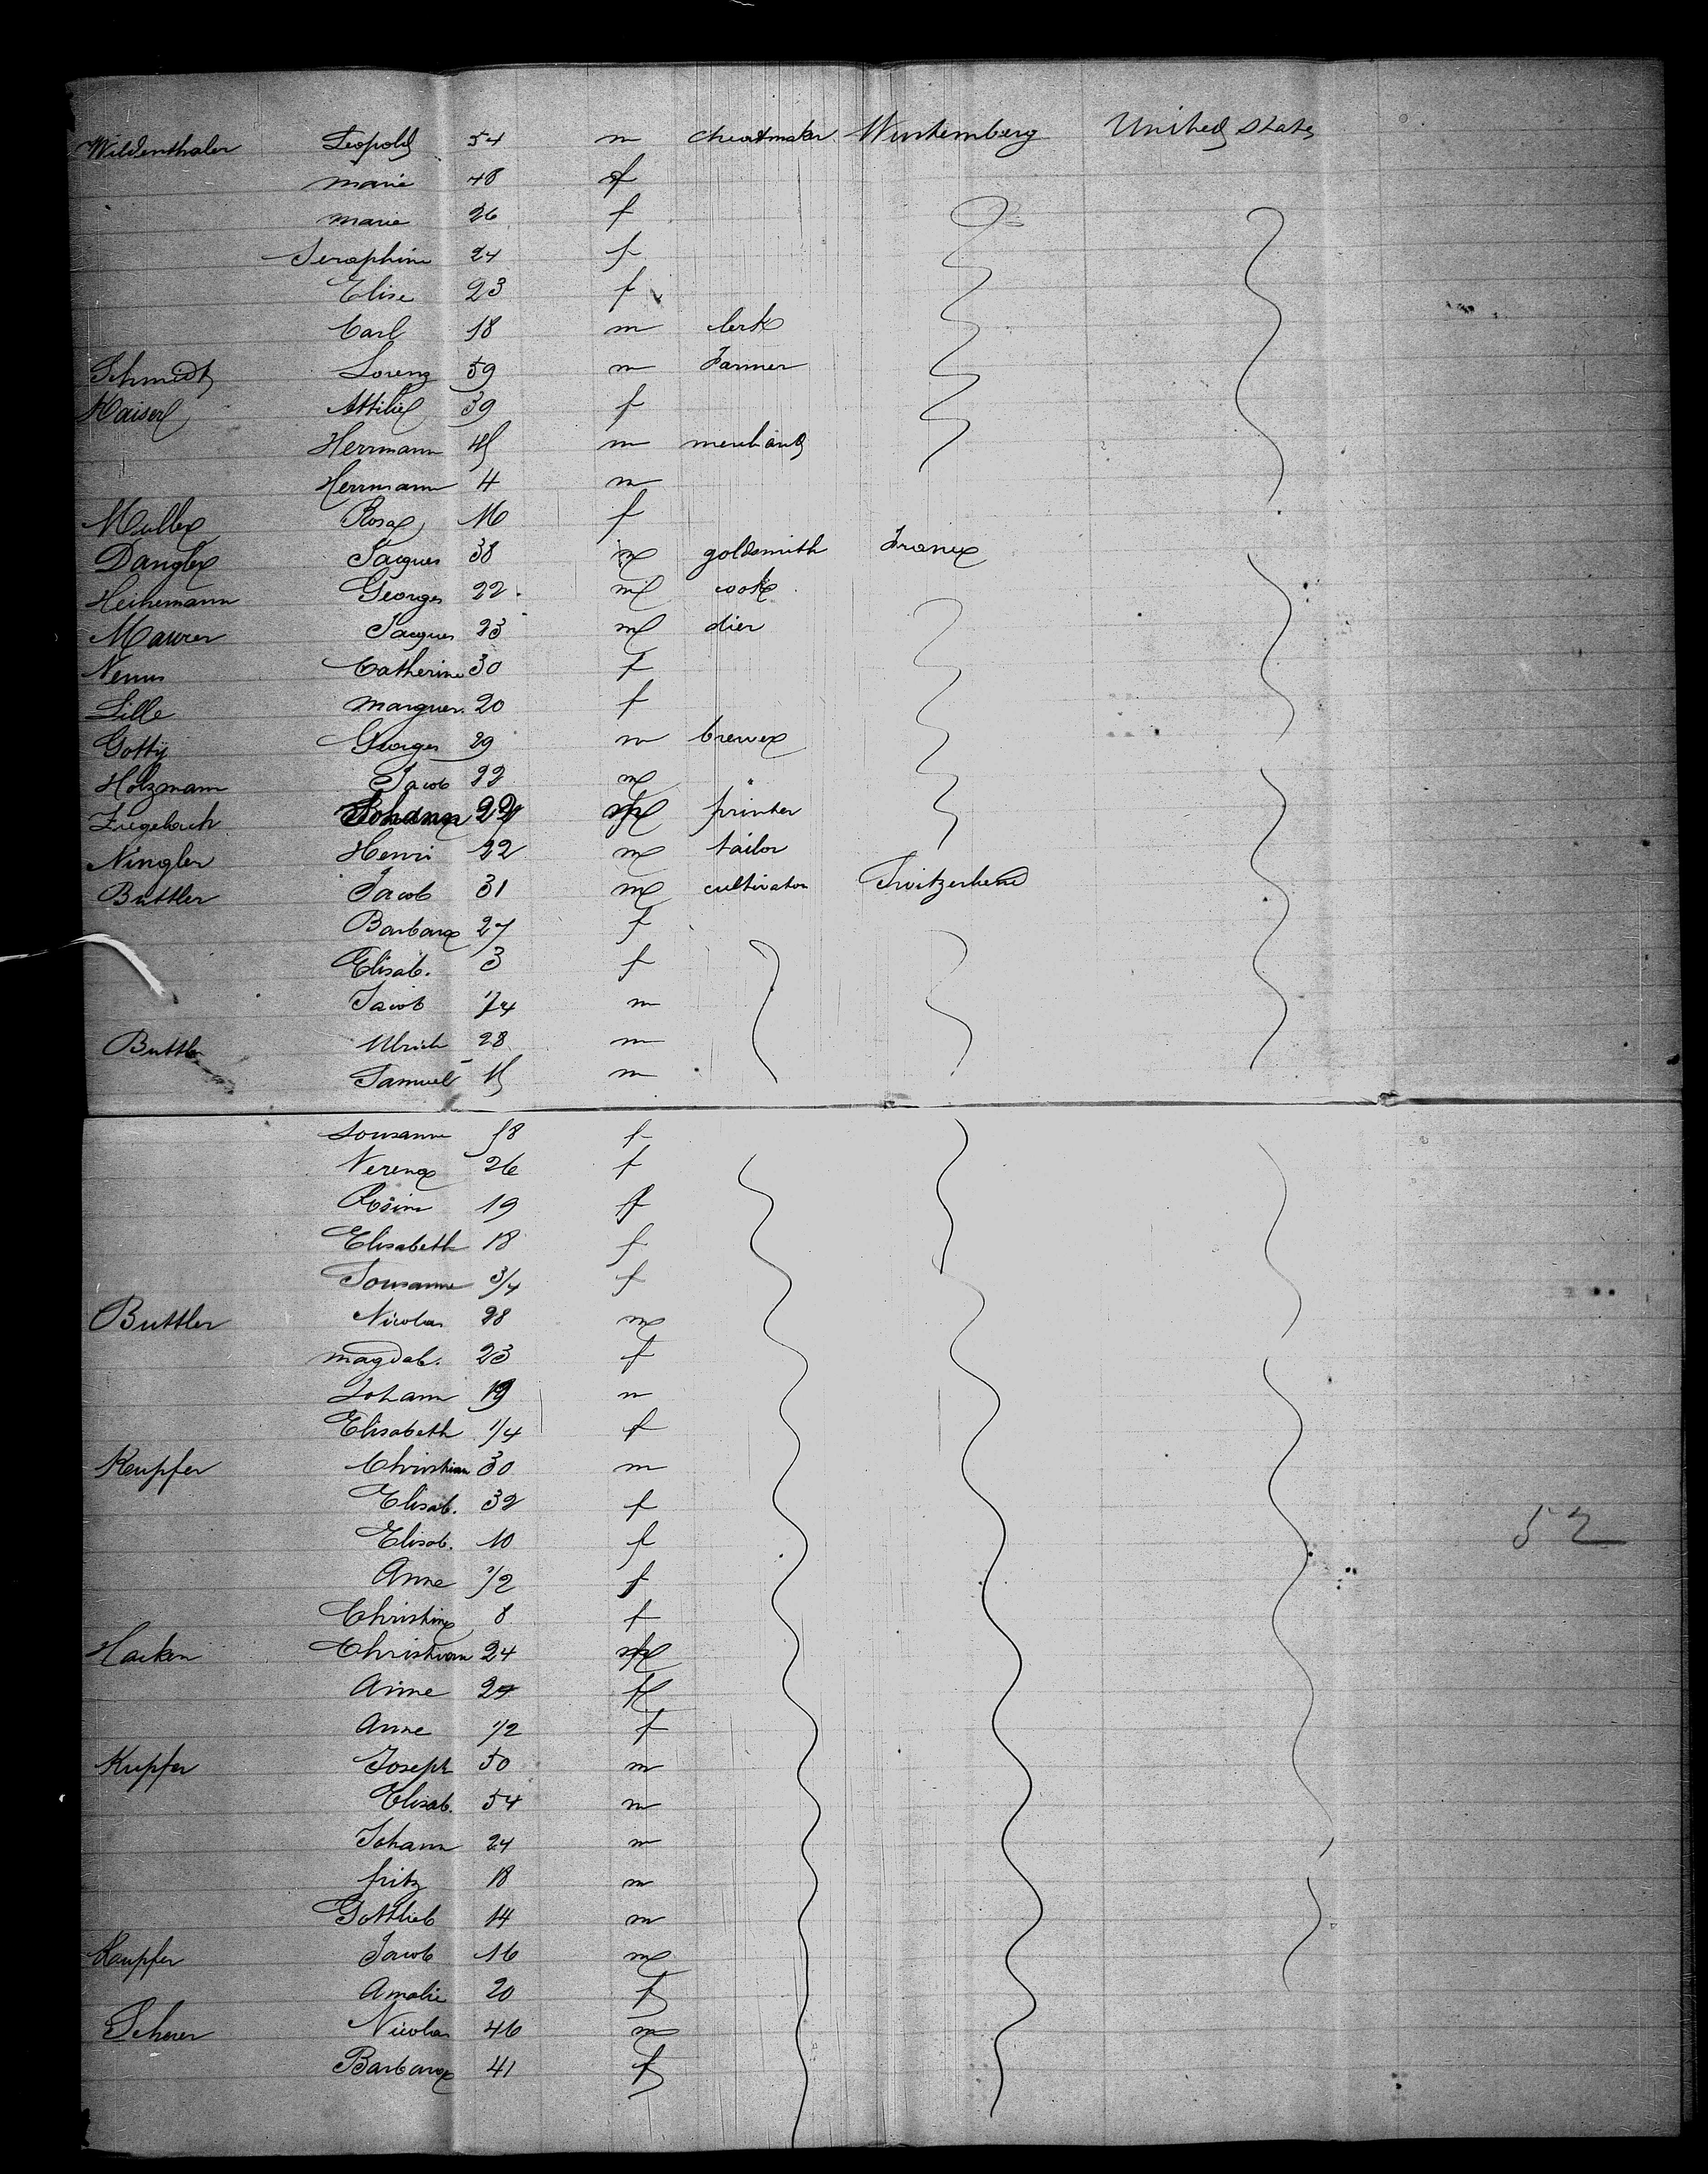 Wildenthaler Leopold 54 m Wurtemberg United States
Marie 48 f
Marie 26 f
Seraphine 24 f
Elise 23 f
Carl 18 m clerk
Schmidt Lorenz 59 m Farmer
Kaiser Attilie 39 f
Herrmann m merchand
Herrmann 4 m
Muller Rosa 16 f
Dangler Jacques 38 m goldsmith France
Heinemann Georges 22 m cook
Maurer Jacques 23 m dier
Catherine 30 f
Lille Marguer. 20 f
Gotty Georges 29 m brewer
Holzmann Jacob 22 m
22 m printer
Ningler Henri 22 m tailor
Buttler Jacob 31 m cultivator Switzerland
Barbara 27 f
Elisab. 3 f
Jacob 1/4 m
Buttler Ulrich 28 m
Samuel m
Sousanne 58 f
Verena 26 f
Rosine 19 f
Elisabeth 18 f
Sousanne 3/4 f
Buttler Nicolas 28 m
Magdal. 23 f
Johann 19 m
Elisabeth 1/4 f
Kupfer Christian 30 m
Elisab. 32 f
Elisab. 10 f
Anne 1/2 f
Christine 8 f
52
Christian 24 m
Anne 24 f
Anne 1/2 f
Kupfer Joseph 50 m
Elisab. 54 m
Johann 24 m
fritz 18 m
Gottlieb 14 m
Kupfer Jacob 16 m
Amalie 20 f
Scherer Nicolas 46 m
Barbara 41 f